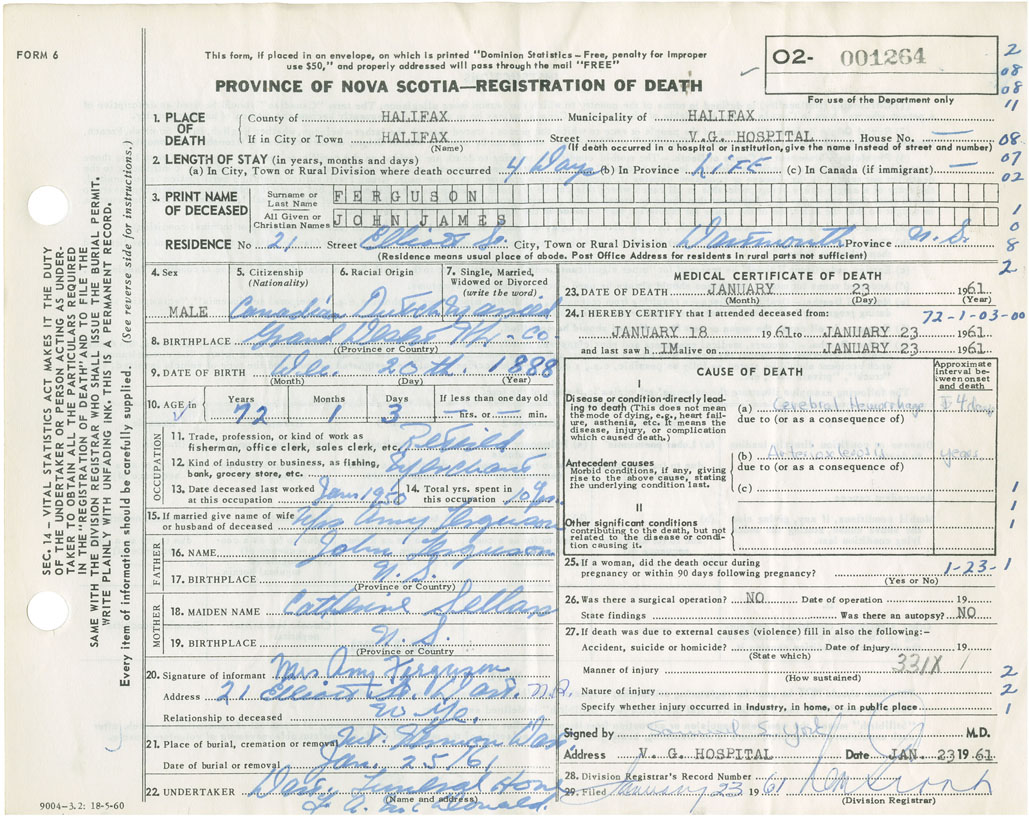 FORM 6
This form, if placed in an envelope, on which is printed "Dominion Statistics—Free, penalty for improper
use $50," and properly addressed will pass through the mail "FREE"
PROVINCE OF NOVA SCOTIA—REGISTRATION OF DEATH
O2- 001264
For use of the Department only
2
08
08
11
08
07
02
1
0
8
2
SEC. 14 – VITAL STATISTICS ACT MAKES IT THE DUTY
OF THE UNDERTAKER OR PERSON ACTING AS UNDER-
TAKER TO OBTAIN ALL THE PARTICULARS REQUIRED
IN THE "REGISTRATION OF DEATH" AND TO FILE THE
SAME WITH THE DIVISION REGISTRAR WHO SHALL ISSUE THE BURIAL PERMIT.
WRITE PLAINLY WITH UNFADING INK. THIS IS A PERMANENT RECORD.
Every item of information should be carefully supplied. (See reverse side for instructions.)
1. PLACE OF DEATH
County of HALIFAX Municipality of HALIFAX
If in City or Town HALIFAX Street V.G. HOSPITAL House No. —
(Name) (If death occurred in a hospital or institution, give the name instead of street and number)
2. LENGTH OF STAY (in years, months and days)
(a) In City, Town or Rural Division where death occurred 4 Days (b) In Province LIFE (c) In Canada (if immigrant) —
3. PRINT NAME OF DECEASED
Surname or Last Name FERGUSON
All Given or Christian Names JOHN JAMES
RESIDENCE No 21 Street Elliott St. City, Town or Rural Division Dartmouth Province N.S.
(Residence means usual place of abode. Post Office Address for residents in rural parts not sufficient)
4. Sex
MALE
5. Citizenship
(Nationality)
Canadian
6. Racial Origin
Dutch
7. Single, Married,
Widowed or Divorced
(write the word)
Married
8. BIRTHPLACE Grand Desert Hfx - Co
(Province or Country)
9. DATE OF BIRTH Dec. 20th. 1888
(Month) (Day) (Year)
10. AGE in Years 72 Months 1 Days 3
If less than one day old
— hrs. or — min.
OCCUPATION
11. Trade, profession, or kind of work as
fisherman, office clerk, sales clerk, etc. Retired
12. Kind of industry or business, as fishing,
bank, grocery store, etc. Merchant
13. Date deceased last worked
at this occupation Jan 1950
14. Total yrs. spent in
this occupation 10 yrs.
15. If married give name of wife
or husband of deceased Mrs Amy Ferguson
FATHER
16. NAME John Ferguson
17. BIRTHPLACE N.S.
(Province or Country)
MOTHER
18. MAIDEN NAME Catherine
19. BIRTHPLACE N.S.
(Province or Country)
20. Signature of informant Mrs Amy Ferguson
Address 21 Elliott St. Dart. N.S.
Relationship to deceased
21. Place of burial, cremation or removal Mt. Vernon Dart
Date of burial or removal Jan. 25/61
22. UNDERTAKER Funeral Home
(Name and address)
McDonald.
MEDICAL CERTIFICATE OF DEATH
23. DATE OF DEATH JANUARY 23 1961
(Month) (Day) (Year)
24. I HEREBY CERTIFY that I attended deceased from:
72-1-03-00
JANUARY 18 1961 to JANUARY 23 1961
and last saw h IM alive on JANUARY 23 1961
CAUSE OF DEATH
Approximate
interval be-
tween onset
and death
I
Disease or condition-directly lead-
ing to death (This does not mean
the mode of dying, e.g., heart fail-
ure, asthenia, etc. It means the
disease, injury, or complication
which caused death.)
(a) Cerebral Hemorrhage 4 days
due to (or as a consequence of)
Antecedent causes
Morbid conditions, if any, giving
rise to the above cause, stating
the underlying condition last.
(b) years
due to (or as a consequence of)
(c)
II
Other significant conditions
contributing to the death, but not
related to the disease or condi-
tion causing it.
1
1
1
25. If a woman, did the death occur during
pregnancy or within 90 days following pregnancy?
(Yes or No)
1-23-1
26. Was there a surgical operation? NO Date of operation 19
State findings Was there an autopsy? NO
27. If death was due to external causes (violence) fill in also the following:–
Accident, suicide or homicide? Date of injury 19
(State which)
Manner of injury 331X
(How sustained)
Nature of injury
Specify whether injury occurred in industry, in home, or in public place
1
2
2
1
Signed by M.D.
Address V. G. HOSPITAL Date JAN. 23 1961
28. Division Registrar's Record Number
29. Filed January 23 1961
(Division Registrar)
9004–3.2: 18-5-60